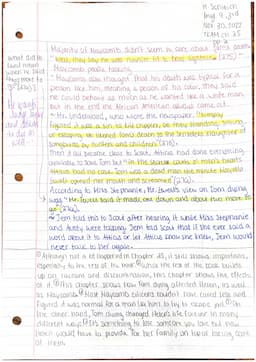 M Schleich
Eng. 9, 2nd
Nov 30, 2022
TKAM ch 25
Majority of Maycomb didn't seem to care about Tom's death
well, they say he was runnin' it to bein' nighttime (275)
- Maycomb people talking
- Maycomb also thought that his death was typical for a
person like him, meaning a person of his color, they said
he could behave as much as he wanted like a white man
but in the end the African American always came out.
- Mr. Underwood, who wrote the newspaper,
figured it was a sin to kill cripples, be they standing, sitting,
or escaping. He likened Tom's death to the senseless slaughter of
songbirds by hunters and children (275).
Then it all became clear to Scout, Atticus had done everything
possible to save Tom but "in the secret courts of men's hearts
Atticus had no case. Tom was a dead man the minute Mayella
Ewell opened her mouth and screamed" (276).
According to Miss Stephanie, Mr. Ewell's view on Tom dying
was "Mr. Ewell said it made one down and about two more to
go" (276).
- Jem told this to Scout after hearing it while Miss Stephanie
and Aunty were talking. Jem told Scout that if she ever said a
word about it to Atticus or let Atticus know she knew, Jem would
never talk to her again.
What did Mr.
Ewell mean
when he said
"two more to
go" (276)?
Although not a lot happened in Chapter 25, it still shows importance,
especially to the rest of the book. When the rest of the book builds
up on racism and discrimination, this chapter shows the effects
of it. This chapter shows how Tom dying affected Helen, as well
as Maycomb. Most Maycomb citizens couldn't have cared less and
figured it was normal for a man like him to try to escape. On
the other hand, Tom dying changed Helen's life forever in many
different ways. It's something to lose someone you love but now
Helen would have to provide for her family on top of taking care
of them.